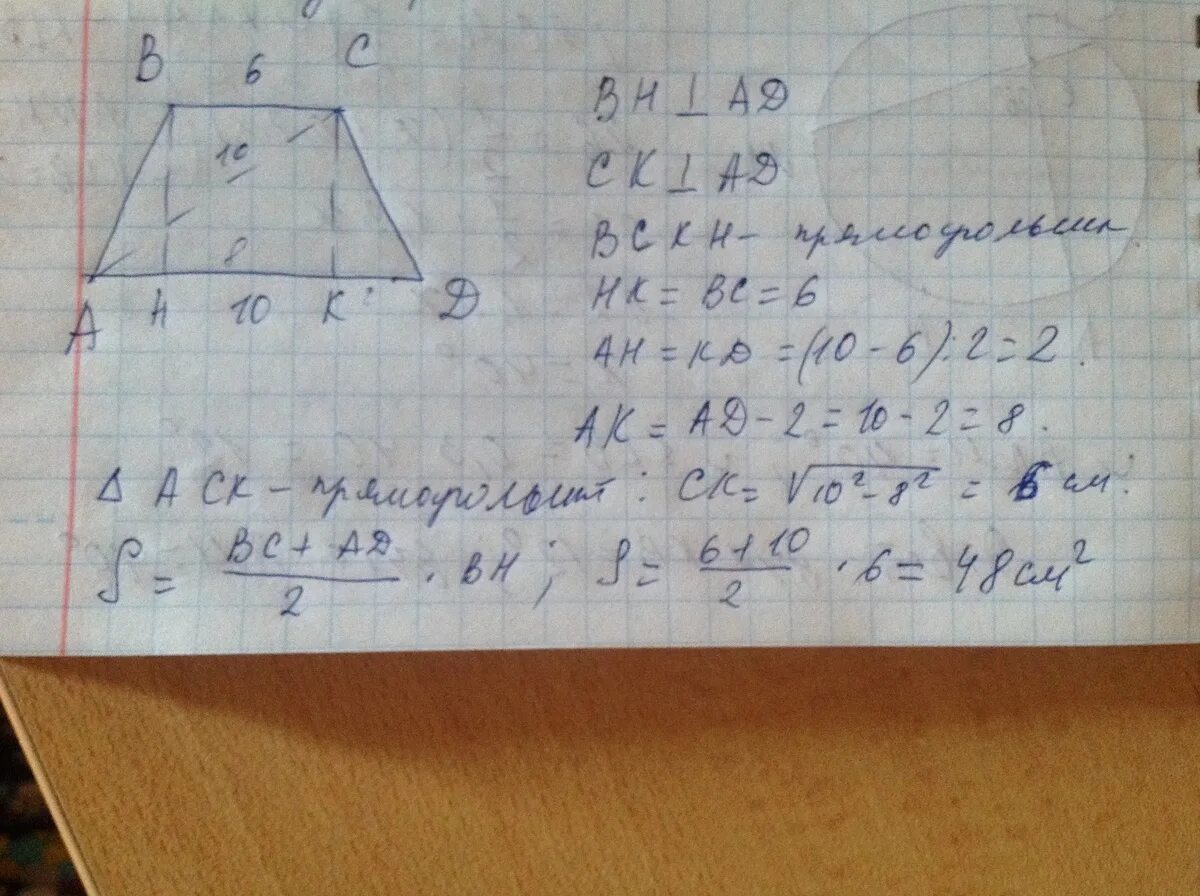 B 6 C
10
8
A H 10 K 2 D
BH ⊥ AD
CK ⊥ AD
BCKH - прямоугольник
HK = BC = 6
AH = KD = (10 - 6) : 2 = 2.
AK = AD - 2 = 10 - 2 = 8.
Δ ACK - прямоугольный : CK = √10² - 8² = 6 см.
S = BC + AD / 2 · BH ; S = 6 + 10 / 2 · 6 = 48 см²